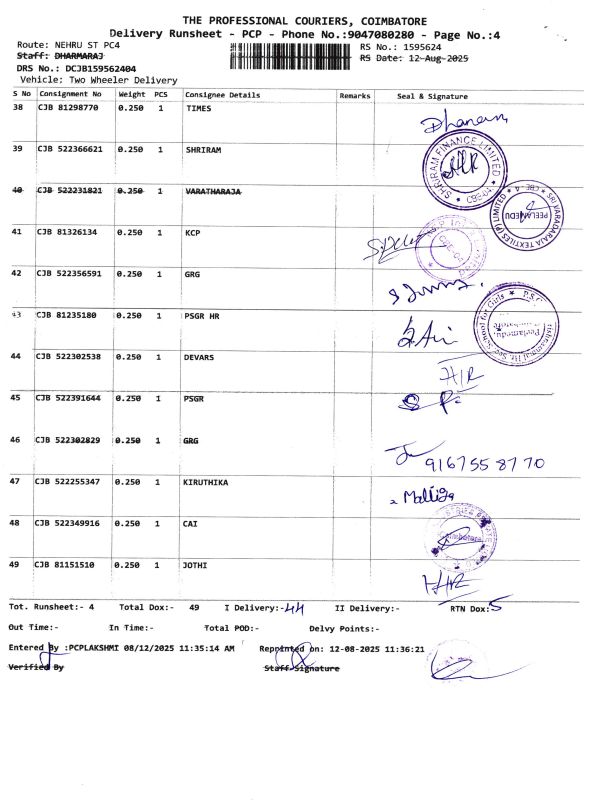 THE PROFESSIONAL COURIERS, COIMBATORE
Delivery Runsheet - PCP - Phone No.:9047080280 - Page No.:4
Route: NEHRU ST PC4 RS No.: 1595624
Staff: DHARMARAJ RS Date: 12-Aug-2025
DRS No.: DCJB159562404
Vehicle: Two Wheeler Delivery
S No Consignment No Weight PCS Consignee Details Remarks Seal & Signature
38 CJB 81298770 0.250 1 TIMES
39 CJB 522366621 0.250 1 SHRIRAM SHRIRAM FINANCE LIMITED CBE-04
40 CJB 522231821 0.250 1 VARATHARAJA SRI VARADARAJA TEXTILES (P) LIMITED CBE - 4 PEELAMEDU
41 CJB 81326134 0.250 1 KCP
42 CJB 522356591 0.250 1 GRG
43 CJB 81235180 0.250 1 PSGR HR
44 CJB 522302538 0.250 1 DEVARS
45 CJB 522391644 0.250 1 PSGR
46 CJB 522302829 0.250 1 GRG 9167558770
47 CJB 522255347 0.250 1 KIRUTHIKA Malliga
48 CJB 522349916 0.250 1 CAI
49 CJB 81151510 0.250 1 JOTHI
Tot. Runsheet:- 4 Total Dox:- 49 I Delivery:- 44 II Delivery:- RTN Dox: 5
Out Time:- In Time:- Total POD:- Delvy Points:-
Entered By :PCPLAKSHMI 08/12/2025 11:35:14 AM Reprinted on: 12-08-2025 11:36:21
Verified By Staff Signature